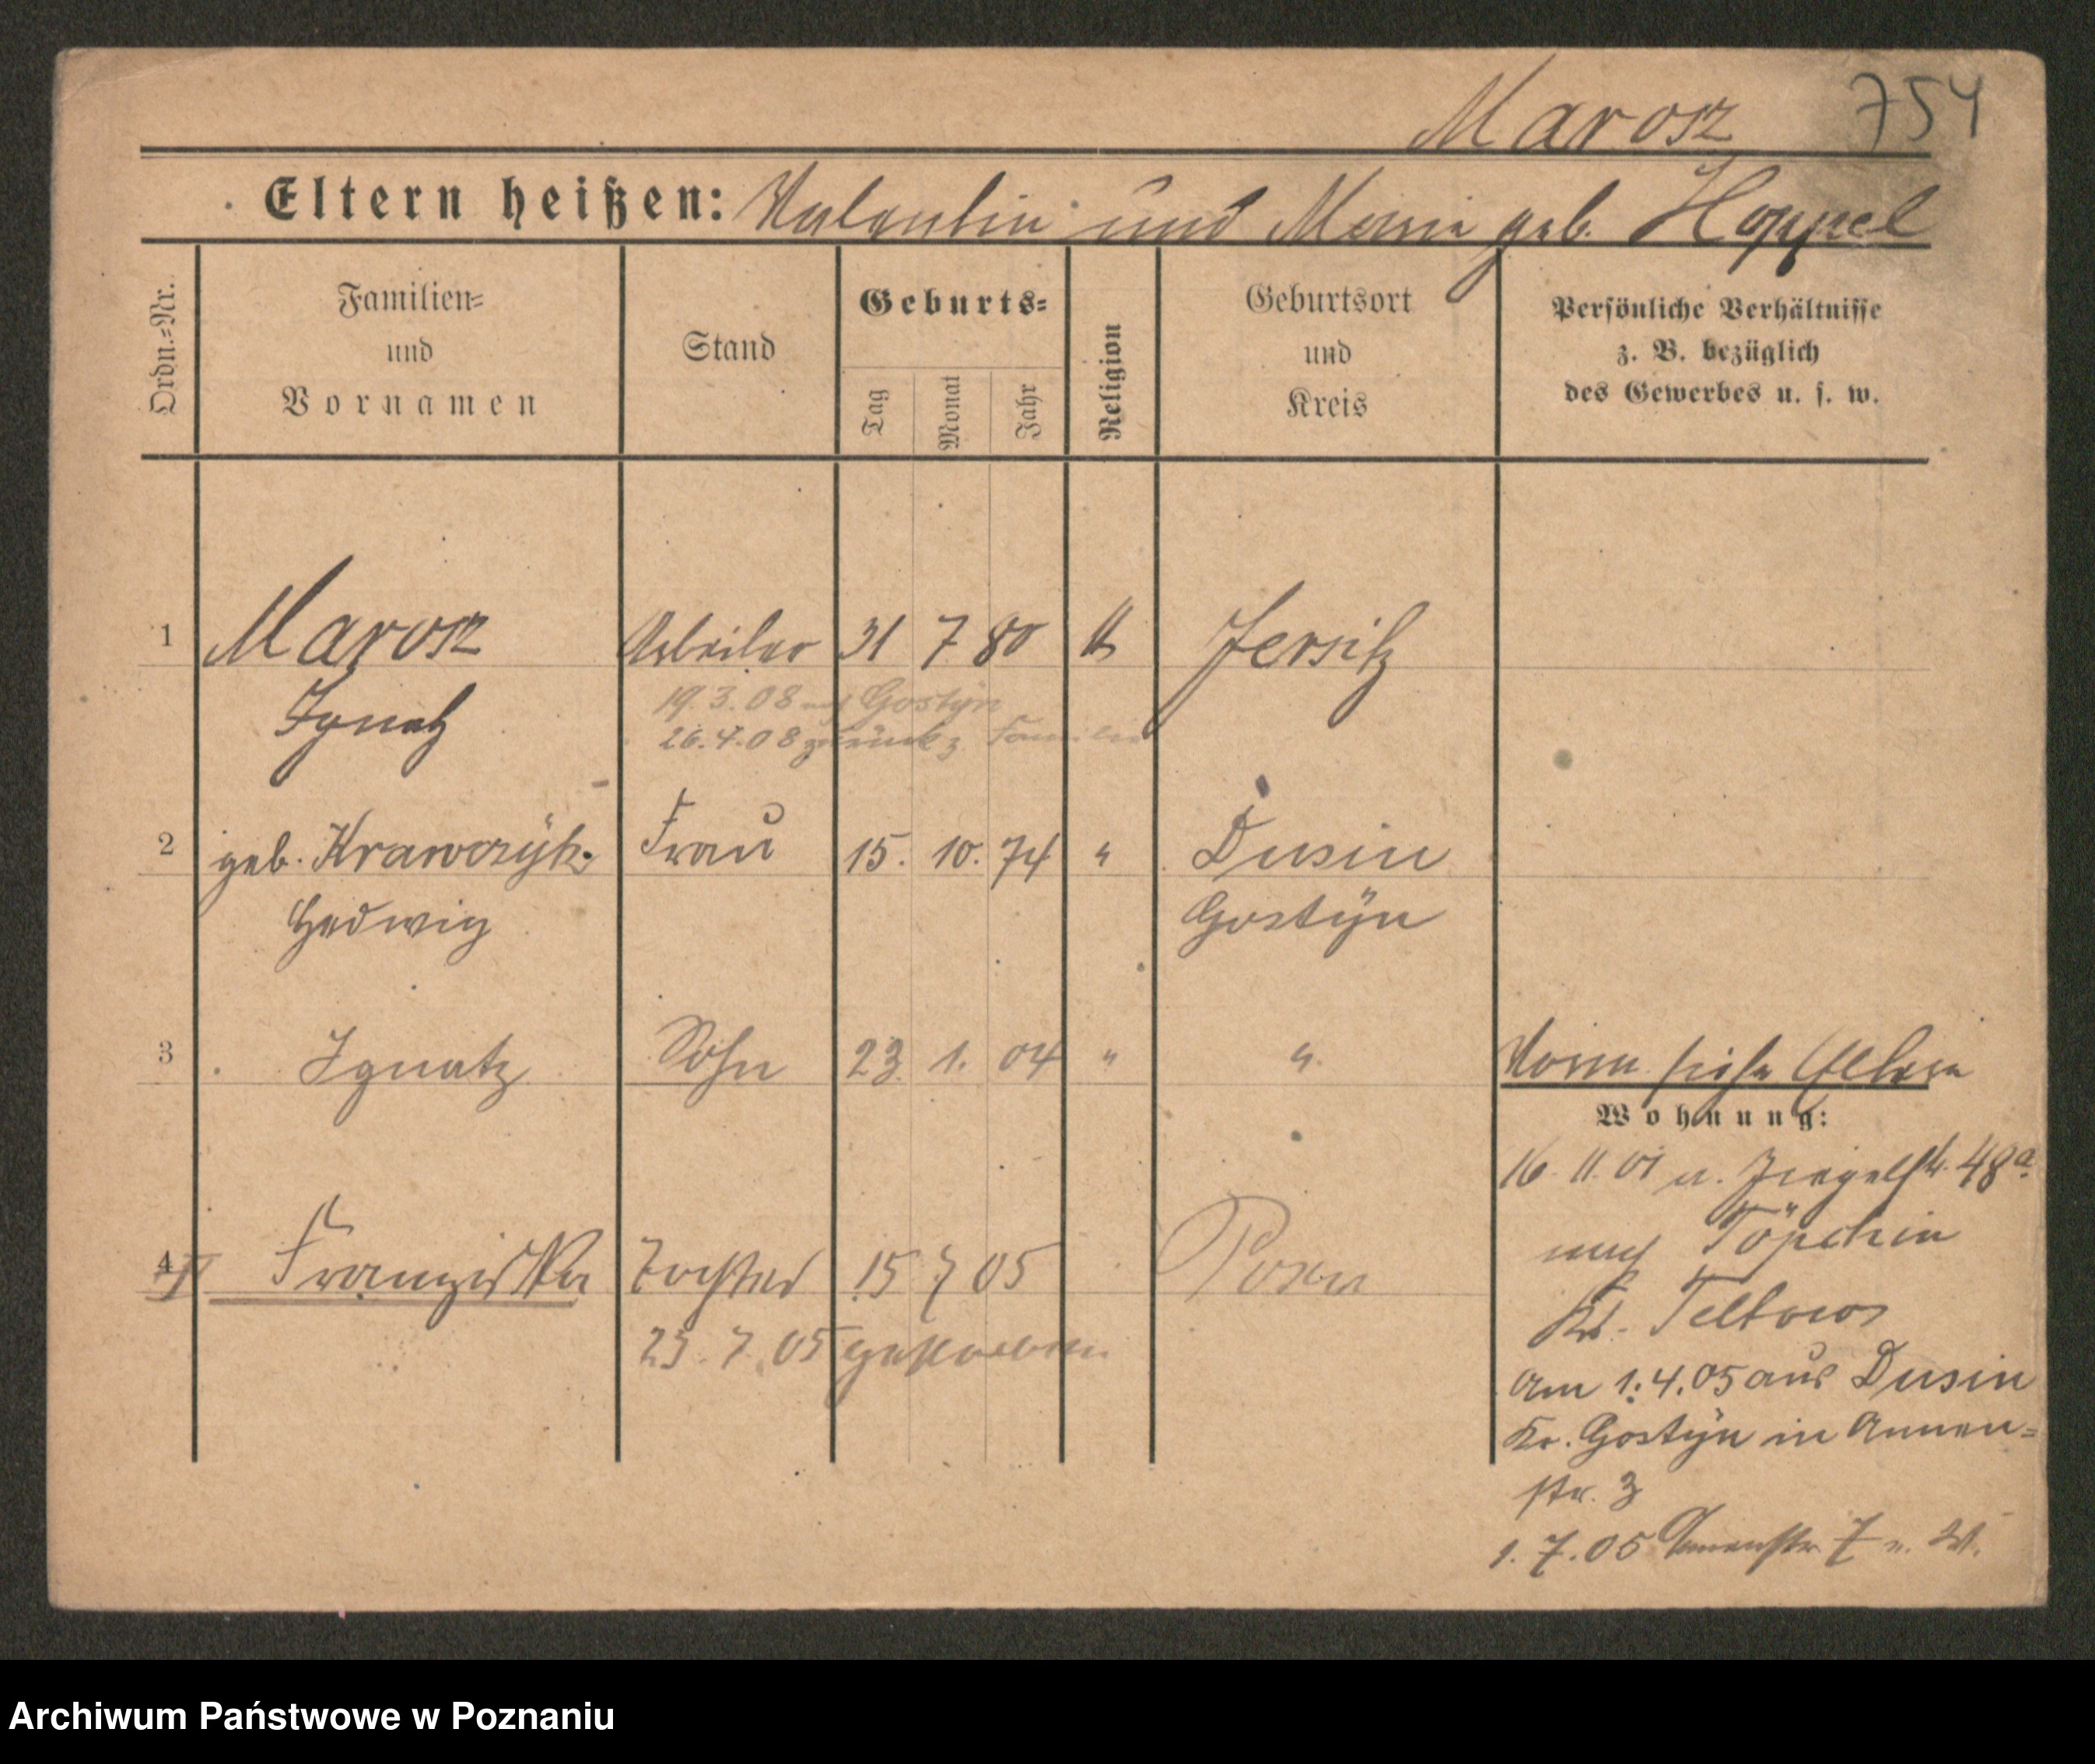 Marosz 754
Eltern heißen: Valentin und Marie geb. Hoppel
Ordn.=Nr.
Familien=
und
Vornamen
Stand
Geburts=
Tag
Monat
Jahr
Religion
Geburtsort
und
Kreis
Persönliche Verhältnisse
z. B. bezüglich
des Gewerbes u. s. w.
1 Marosz Arbeiter 31 7 80 k Jersitz
Ignatz
19.3.08 nach Gostÿn
26.4.08 zurück z. Familie
2 geb. Krawczÿk Frau 15. 10. 74 " Dusin
Hedwig Gostÿn
3 Ignatz Sohn 23. 1. 04 " "
Vorm. siehe Eltern
Wohnung:
16. 11. 01 a. Ziegelstr. 48a.
nach Töpchin
Kr. Teltow
4 Franziska Tochter 15 7 05 Posen
23. 7. 05 gestorben
am 1.4.05 aus Dusin
Kr. Gostÿn in Annen=
str. 3
1. 7. 05 Annenstr 7
Archiwum Państwowe w Poznaniu